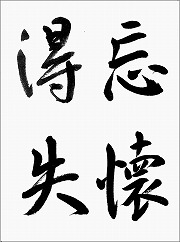 忘懐
得失